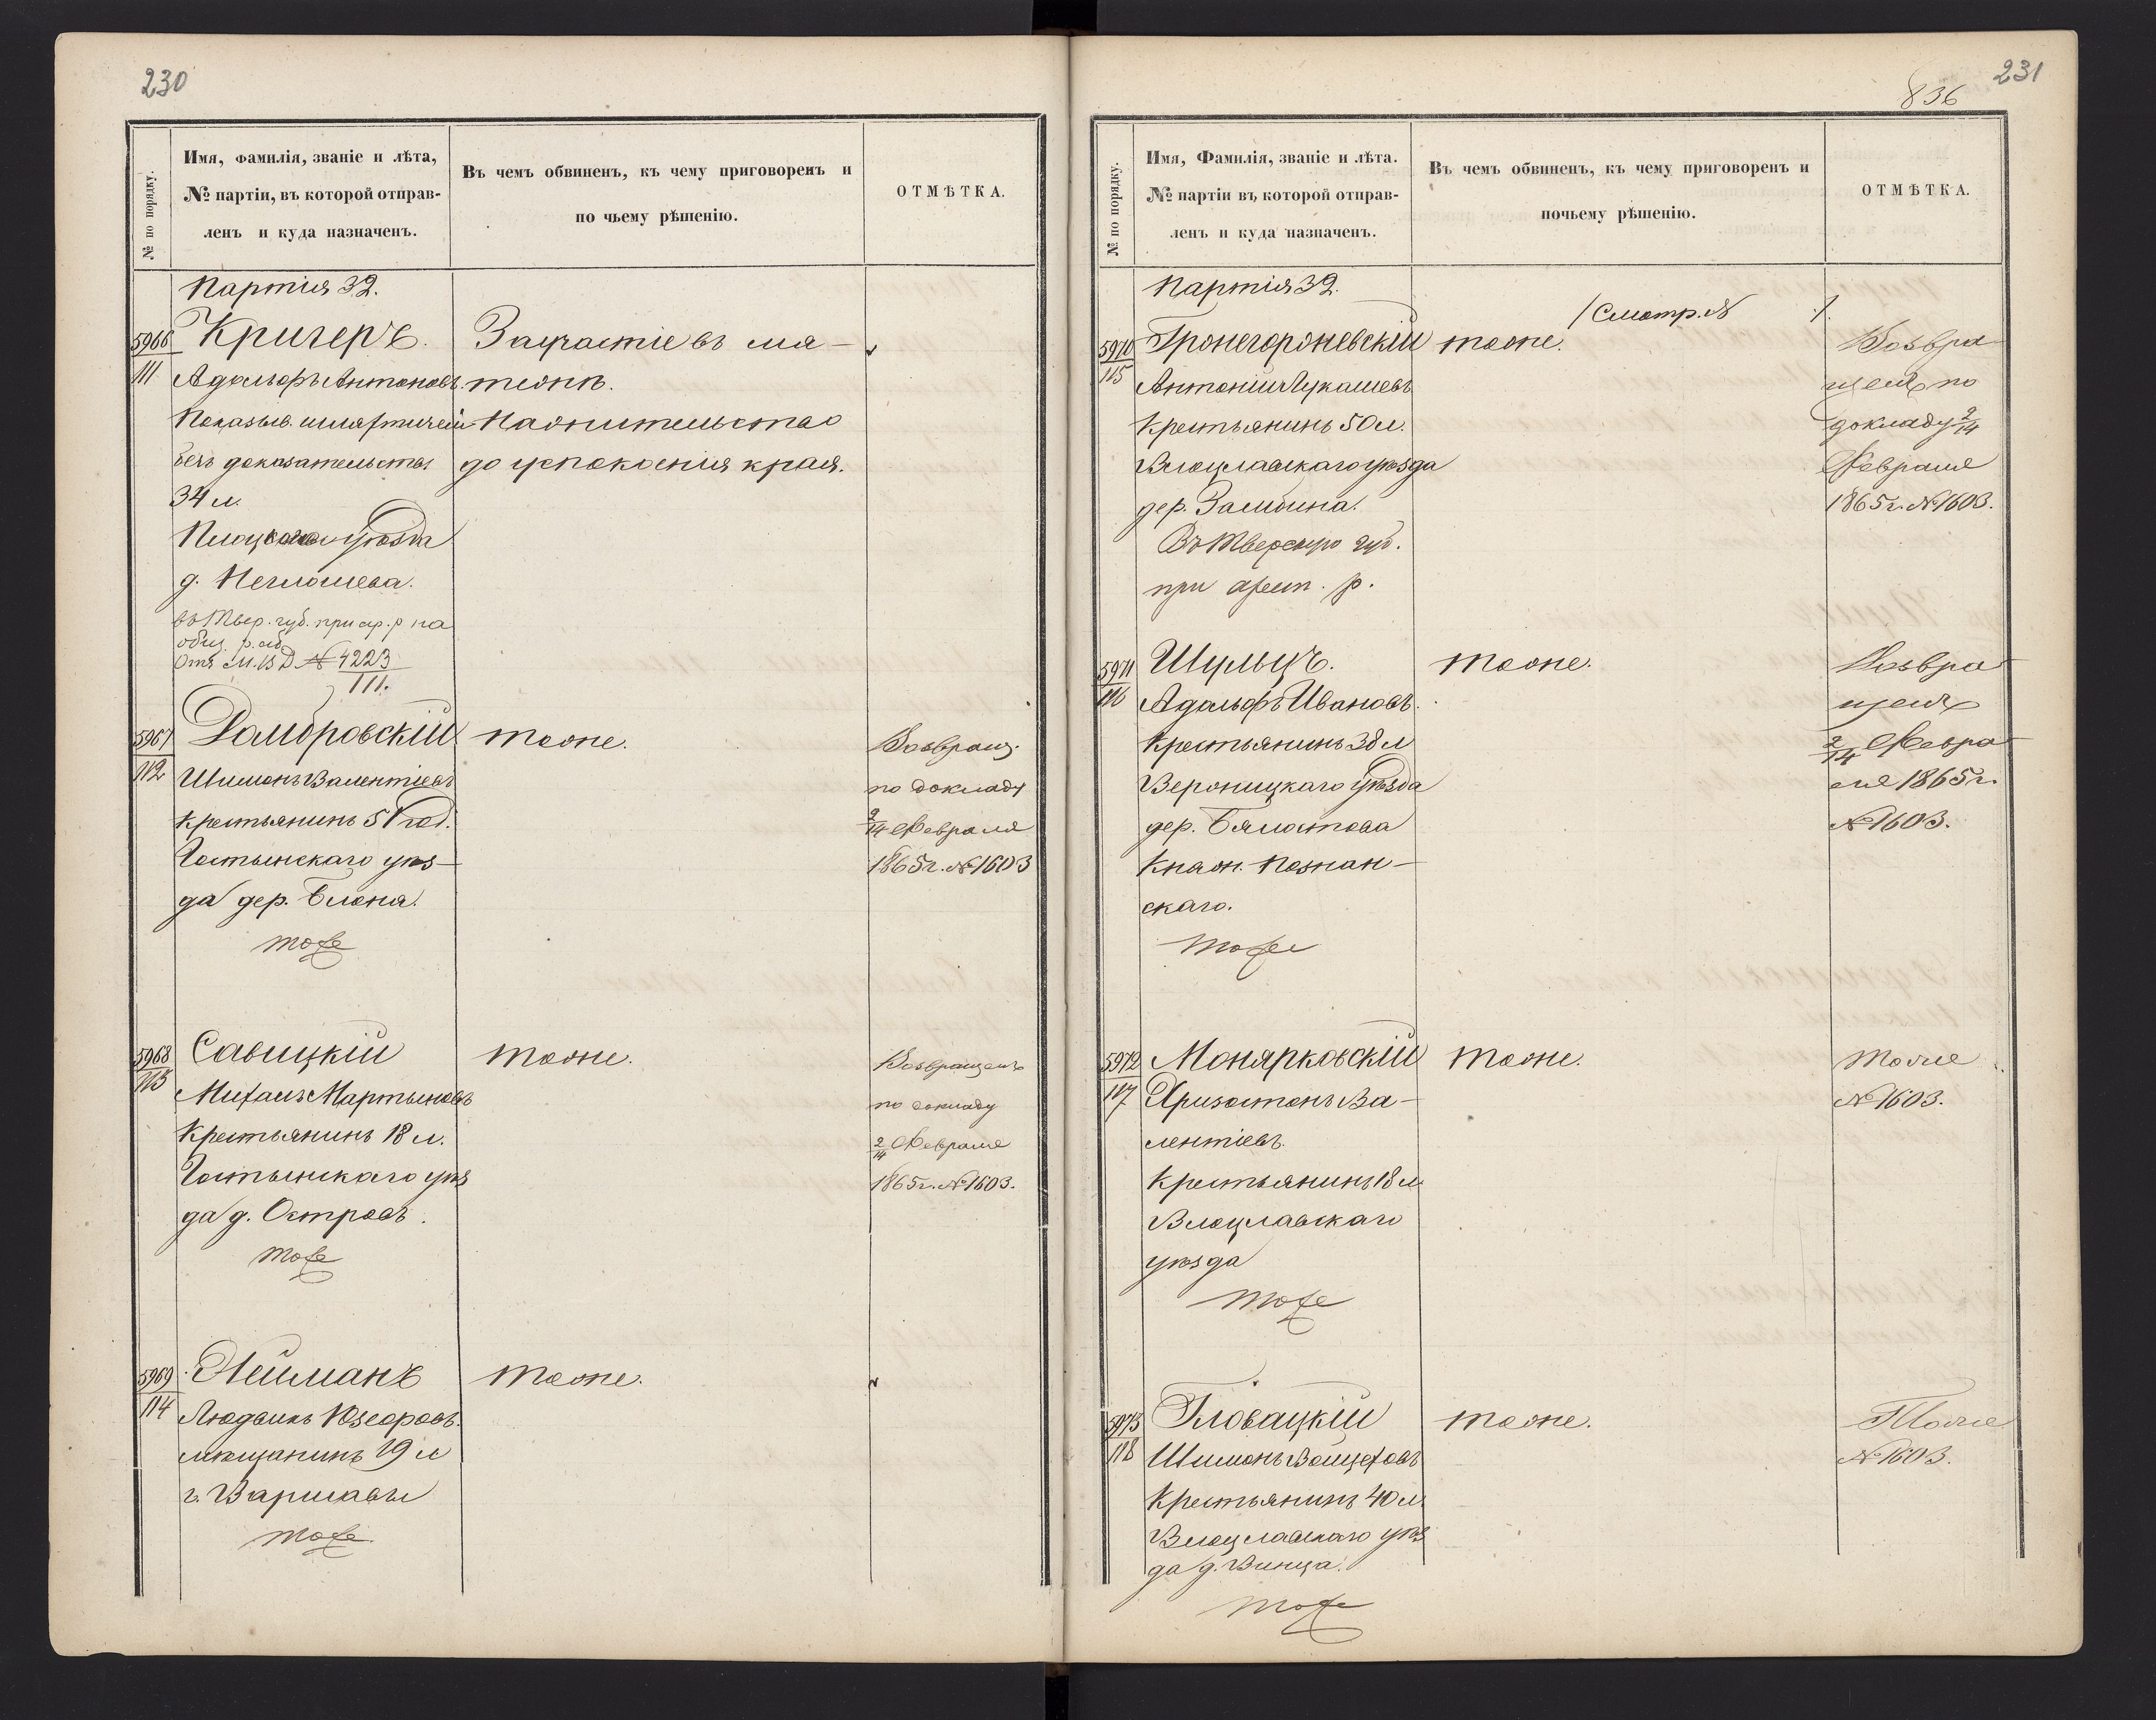 230
№ по порядку.
Имя, фамилія, званіе и лѣта,
№ партіи, въ которой отправ-
ленъ и куда назначенъ.
Въ чемъ обвиненъ, къ чему приговоренъ и
по чьему рѣшенію.
ОТМѢТКА.
Партія 32.
5966
111
Кригеръ.
Адольфъ Антоновъ.
Показыв. шляхтичемъ
безъ доказательства
34 л.
Плоцкаго уѣзда
д.
въ Твер. губ. при ар. р на
общ.
Отн М.В.Д № 4223
111.
За участіе въ мя-
тежѣ.
На жительство
до успокоенія края.
5967
112
Домбровскій
Шимонъ Валентіевъ
крестьянинъ 51 год.
Гостынскаго уѣз-
да дер. Блоня.
тоже
тоже.
Возвращ.
по докладу
2/14 Февраля
1865 г. № 1603
5968
113
Савицкій
Михаилъ Мартыновъ
Крестьянинъ 18 л.
Гостынскаго уѣз
да д. Островъ.
тоже
тоже.
Возвращенъ
по докладу
2/14 Февраля
1865 г. № 1603.
5969
114
Нейманъ
Людвикъ Юзефовъ.
мѣщанинъ 19 л
г. Варшавы
тоже.
тоже.
231
836
№ по порядку.
Имя, Фамилія, званіе и лѣта.
№ партіи въ которой отправ-
ленъ и куда назначенъ.
Въ чемъ обвиненъ, къ чему приговоренъ и
почьему рѣшенію.
ОТМѢТКА.
Партія 32.
/Смотр. № /.
5970
115
Антоній Лукашевъ
Крестьянинъ 50 л.
Влоцлавскаго уѣзда
дер.
Въ Тверскую губ.
при арест. р.
тоже.
Возвра
щенъ по
докладу 2/14
Февраля
1865 г. № 1603.
5971
116
Шульцъ.
Адольфъ Ивановъ.
Крестьянинъ 38 л
уѣзда
дер.
Княж. Познан-
скаго.
тоже
тоже.
Возвра
щенъ
2/14 Февра
ля 1865 г.
№ 1603.
5972
117
Монярковскій
Хризостонъ Ва-
лентіевъ.
Крестьянинъ 18 л
Влоцлавскаго
уѣзда
тоже
тоже.
Тоже
№ 1603.
5973
118
Гловацкій
Шимонъ Войцеховъ
Крестьянинъ 40 л.
Влоцлавскаго уѣз
да д. Винца.
тоже
тоже.
Тоже
№ 1603.